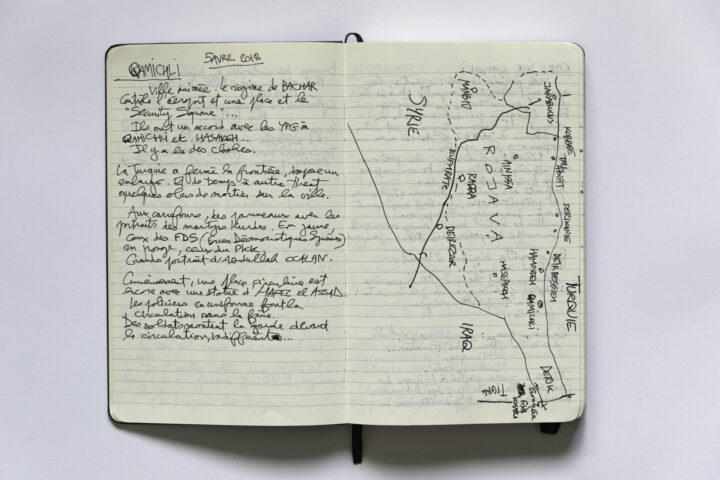 QAMICHLI
5 AVRIL 2018
Ville animée. le régime de BACHAR
contrôle l'aéroport et une place et le
"Security Square"...
Ils ont un accord avec les YPG à
QAMICHLI et HASAKEH...
Il y a là des cloches.
La Turquie a fermé la frontière, impose un
embargo. Et de temps à autre
quelques obus de mortier sur la ville.
Aux carrefours, des panneaux avec les
portraits des martyrs kurdes. En jaune,
ceux des FDS (Forces Démocratiques Syriennes)
en rouge, ceux du PKK.
Grands portraits d'Abdullah OCALAN.
Curieusement, une place circulaire est
encore avec une statue d'HAFEZ el ASSAD.
Les policiers en uniforme font la
circulation dans la
Des soldats montent la garde devant
la circulation, indifférents...
SYRIE
MANBIJ
JARABULUS
KOBANE
TAL ABYAD
AIN ISSA
ROJAVA
EUPHRATE
RAQQA
DEIREZZOR
SERIKANIE
DEIRBESSREH
HAMOUDEH
QAMICHLI
HASSAKEH
TURQUIE
IRAQ
DERIK
TIGRE